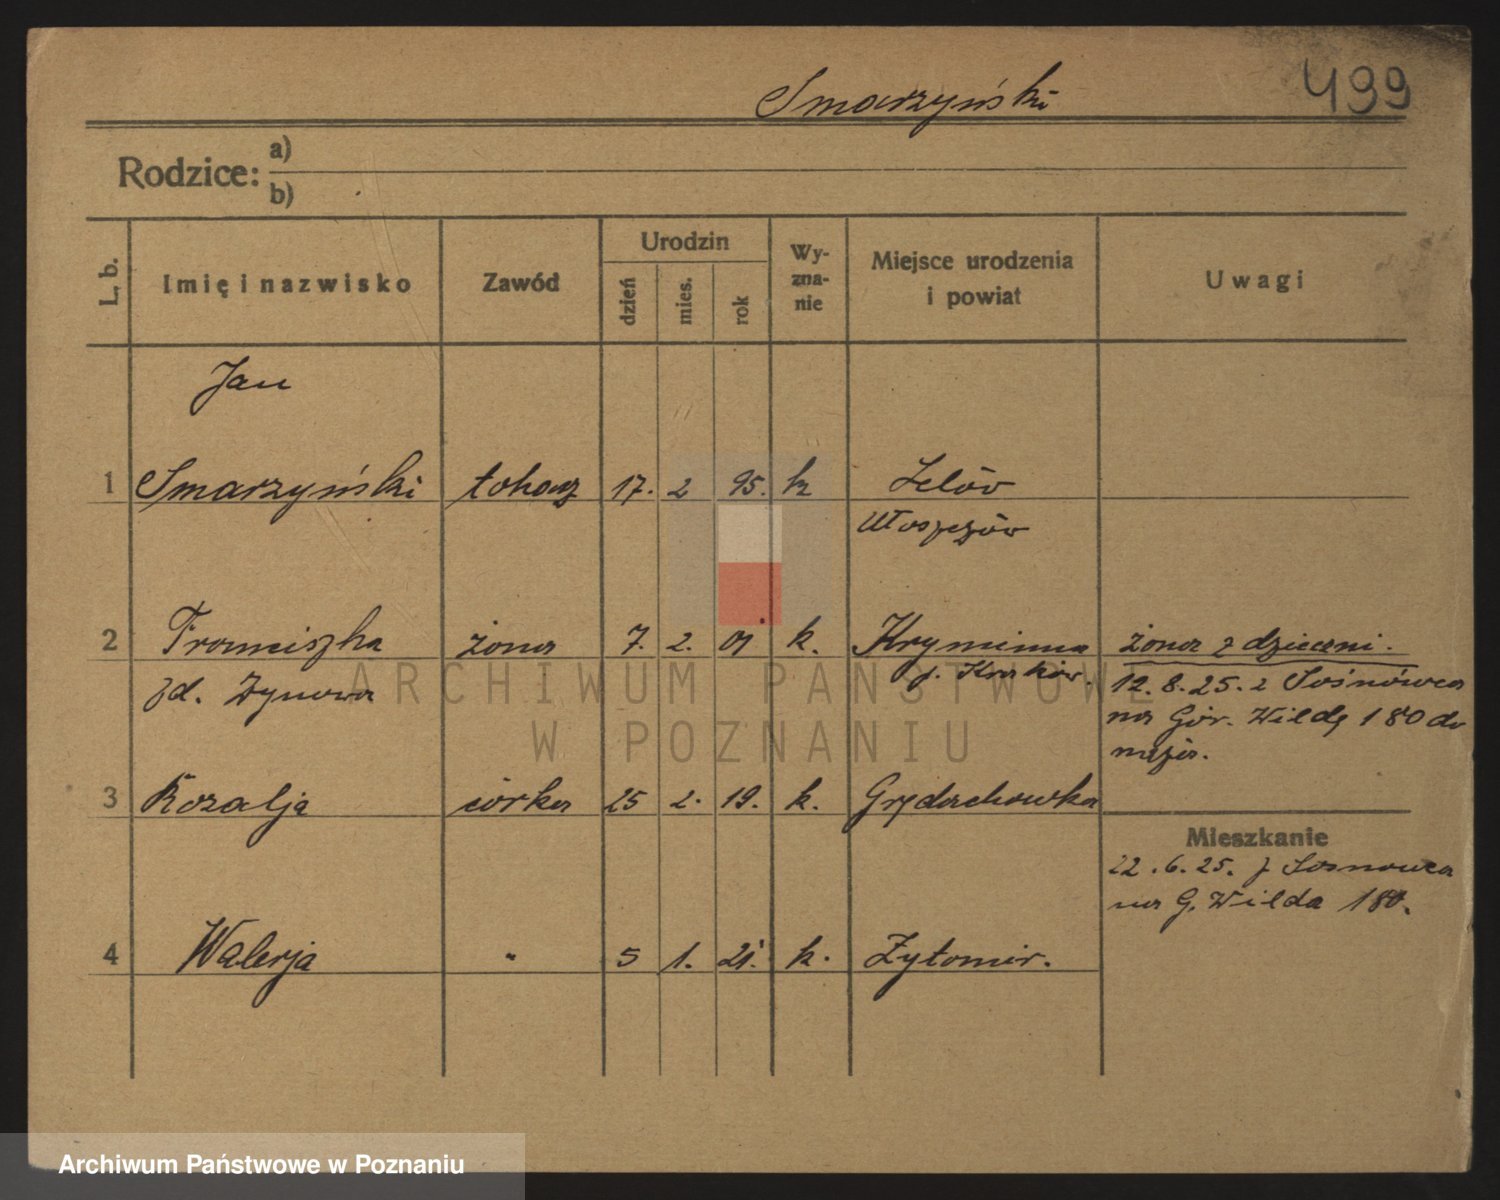 Smarzyński 499
Rodzice: a)
b)
L. b. Imię i nazwisko Zawód Urodzin dzień mies. rok Wy-zna-nie Miejsce urodzenia i powiat Uwagi
Jan
1 Smarzyński tokarz 17. 2 95. k Lelów
Włoszczów
2 Franciszka żona 7. 2. 01 k. żona z dziećmi.
zd. p. Kraków. 12.8.25. z Sośnówca
na Gór. Wildę 180 do
męża.
3 Rozalja córka 25 2. 19. k.
Mieszkanie
22.6.25. z Sosnowca
na G. Wilda 180.
4 Walerja " 5 1. 21. k. Żytomir.
ARCHIWUM PAŃSTWOWE
W POZNANIU
Archiwum Państwowe w Poznaniu